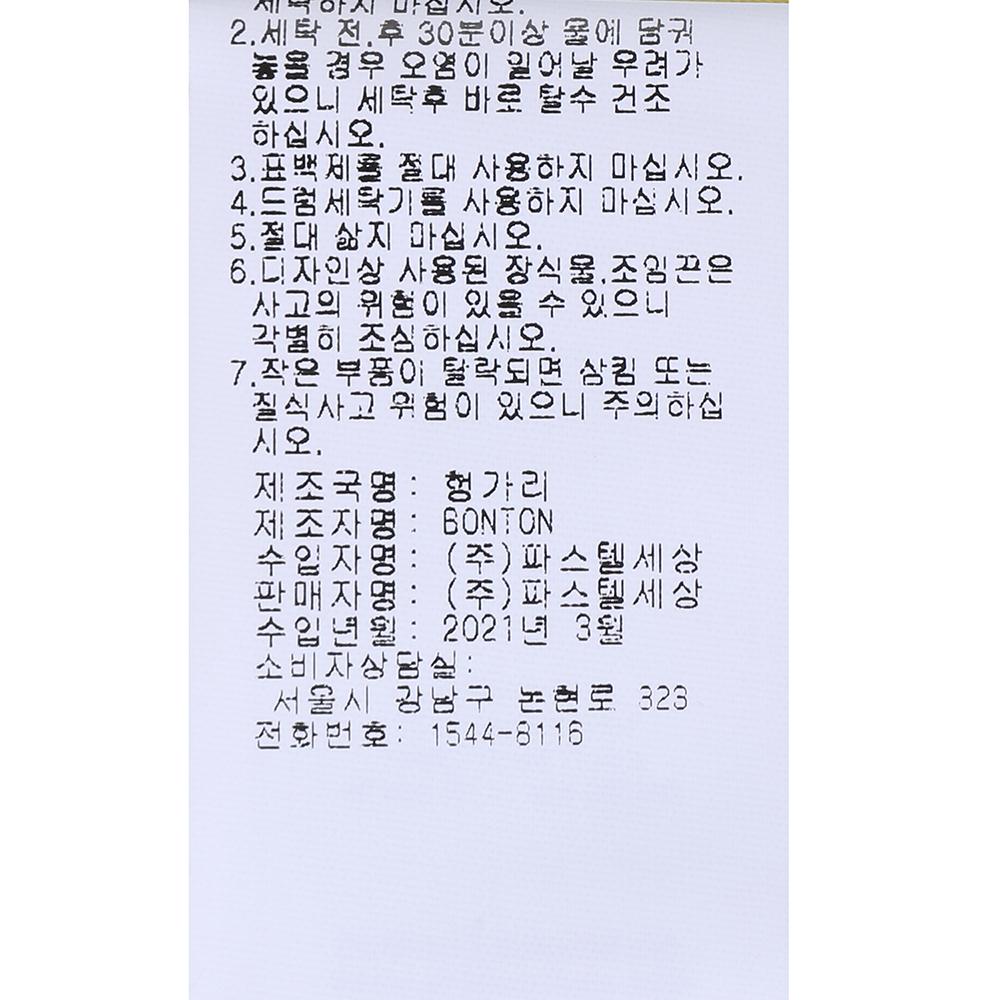 세탁하지 마십시오.
2.세탁 전.후 30분이상 물에 담궈
놓을 경우 오염이 일어날 우려가
있으니 세탁후 바로 탈수 건조
하십시오.
3.표백제를 절대 사용하지 마십시오.
4.드럼세탁기를 사용하지 마십시오.
5.절대 삶지 마십시오.
6.디자인상 사용된 장식물.조임끈은
사고의 위험이 있을 수 있으니
각별히 조심하십시오.
7.작은 부품이 탈락되면 삼킴 또는
질식사고 위험이 있으니 주의하십
시오.
제조국명: 헝가리
제조자명: BONTON
수입자명: (주)파스텔세상
판매자명: (주)파스텔세상
수입년월: 2021년 3월
소비자상담실:
서울시 강남구 논현로 323
전화번호: 1544-8116